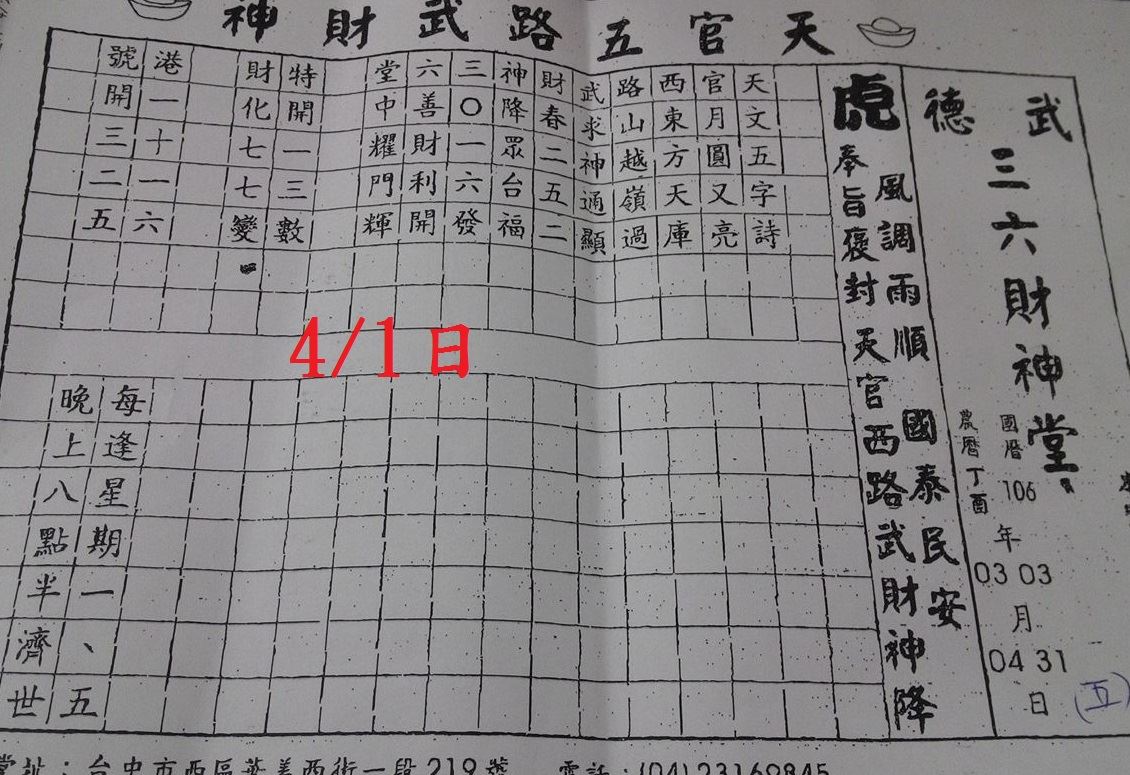 天官五路武財神
武德
三六財神堂
國曆106年03月31日(五)
農曆丁酉年03月04日
虎
風調雨順 國泰民安
奉旨褒封 天官西路武財神降
天文五字詩
官月圓又亮
西東方天庫
路山越嶺過
武求神通顯
財春二五二
神降眾台福
三〇一六發
六善財利開
堂中耀門輝
特開一三數
財化七七變
港一十一六
號開三二五
4/1日
每逢星期一、五
晚上八點半濟世
堂址:台中市西區華美西街一段219號 電話:(04)23169845